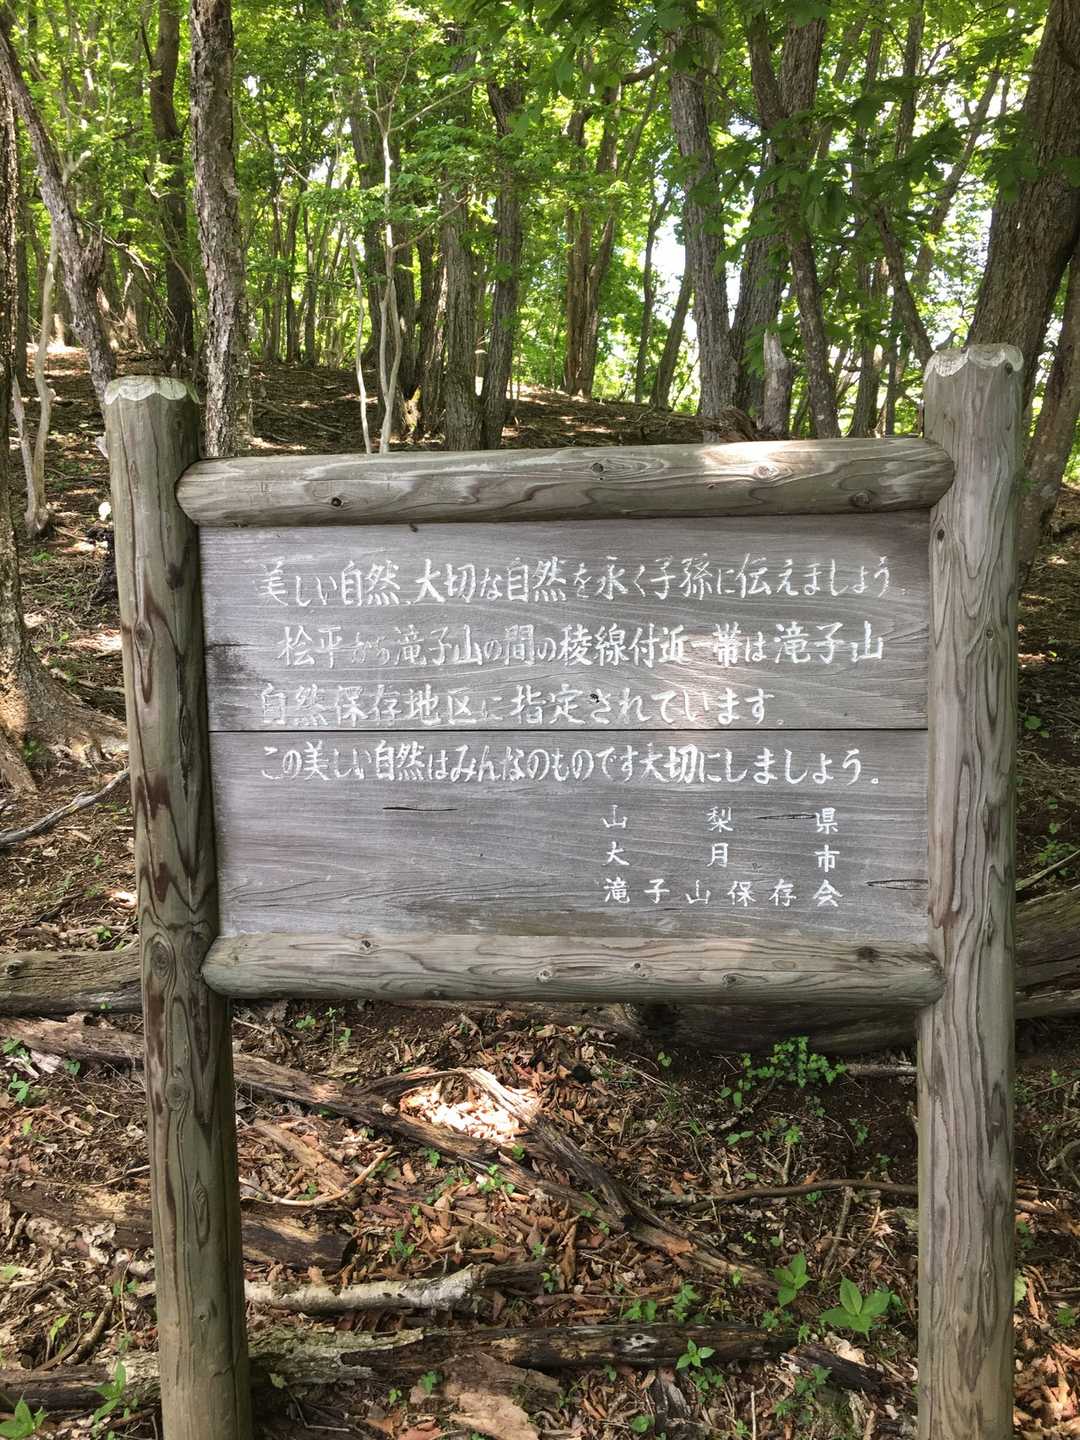 美しい自然、大切な自然を永く子孫に伝えましょう。
桧平から滝子山の間の稜線付近一帯は滝子山
自然保存地区に指定されています。
この美しい自然はみんなのものです大切にしましょう。
山梨県
大月市
滝子山保存会